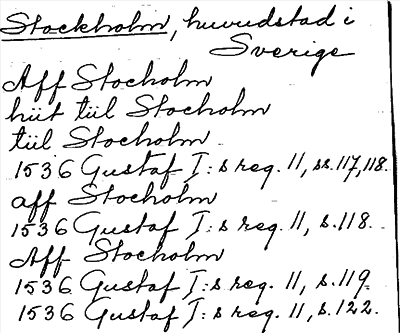 Stockholm, huvudstad i
Sverige
Aff Stocholm
hüt tül Stocholm
tül Stocholm
1536 Gustaf I:s reg. 11, ss. 117, 118.
aff Stocholm
1536 Gustaf I:s reg. 11, s. 118.
Aff Stocholm
1536 Gustaf I:s reg. 11, s. 119.
1536 Gustaf I:s reg. 11, s. 122.